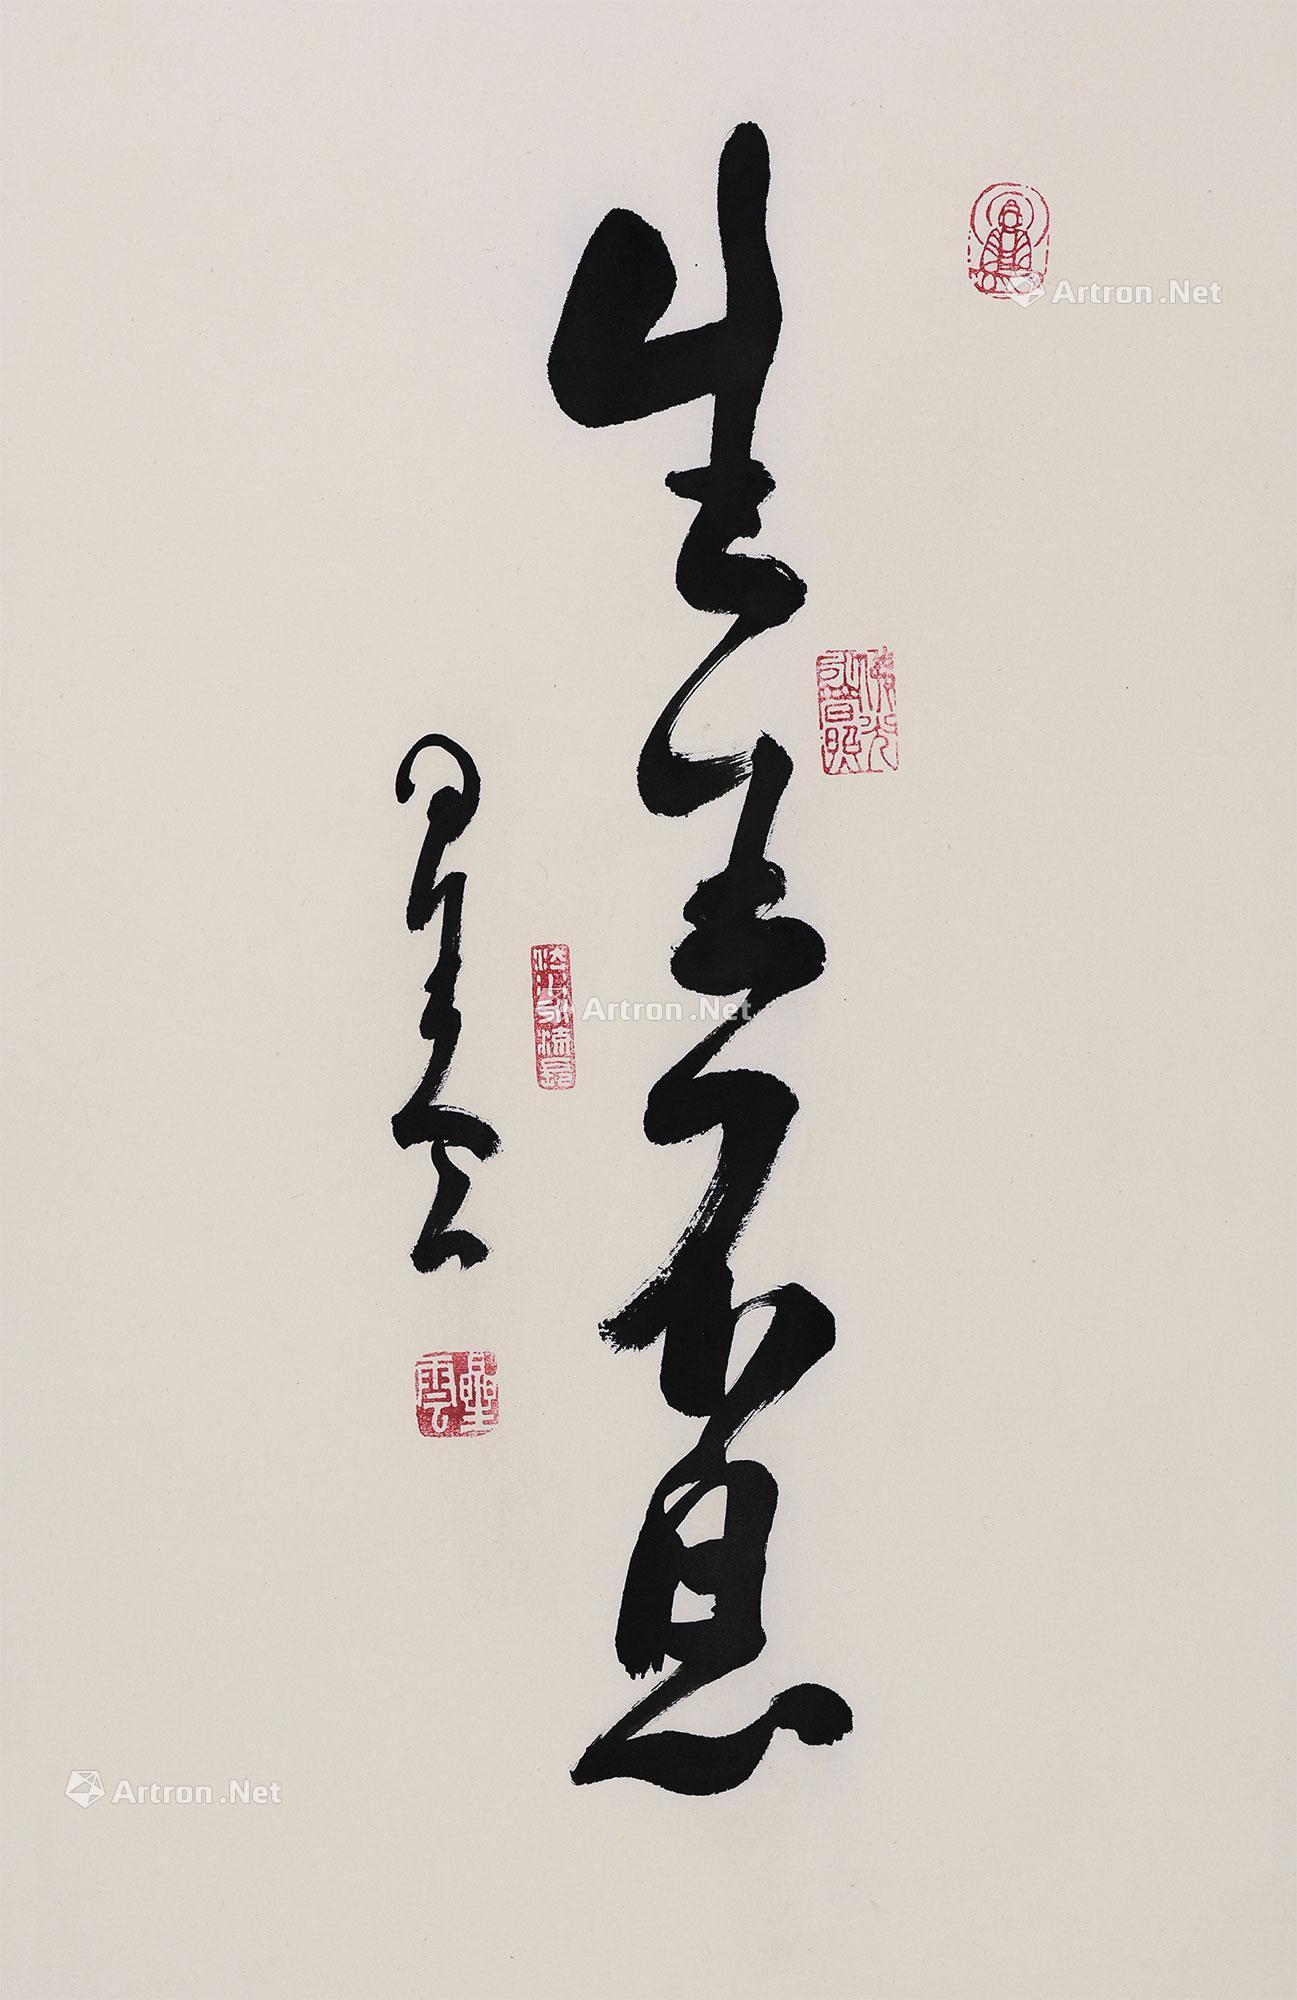 生生不息
佛光普照
星雲
星雲
Artron.Net
Artron.Net
Artron.Net